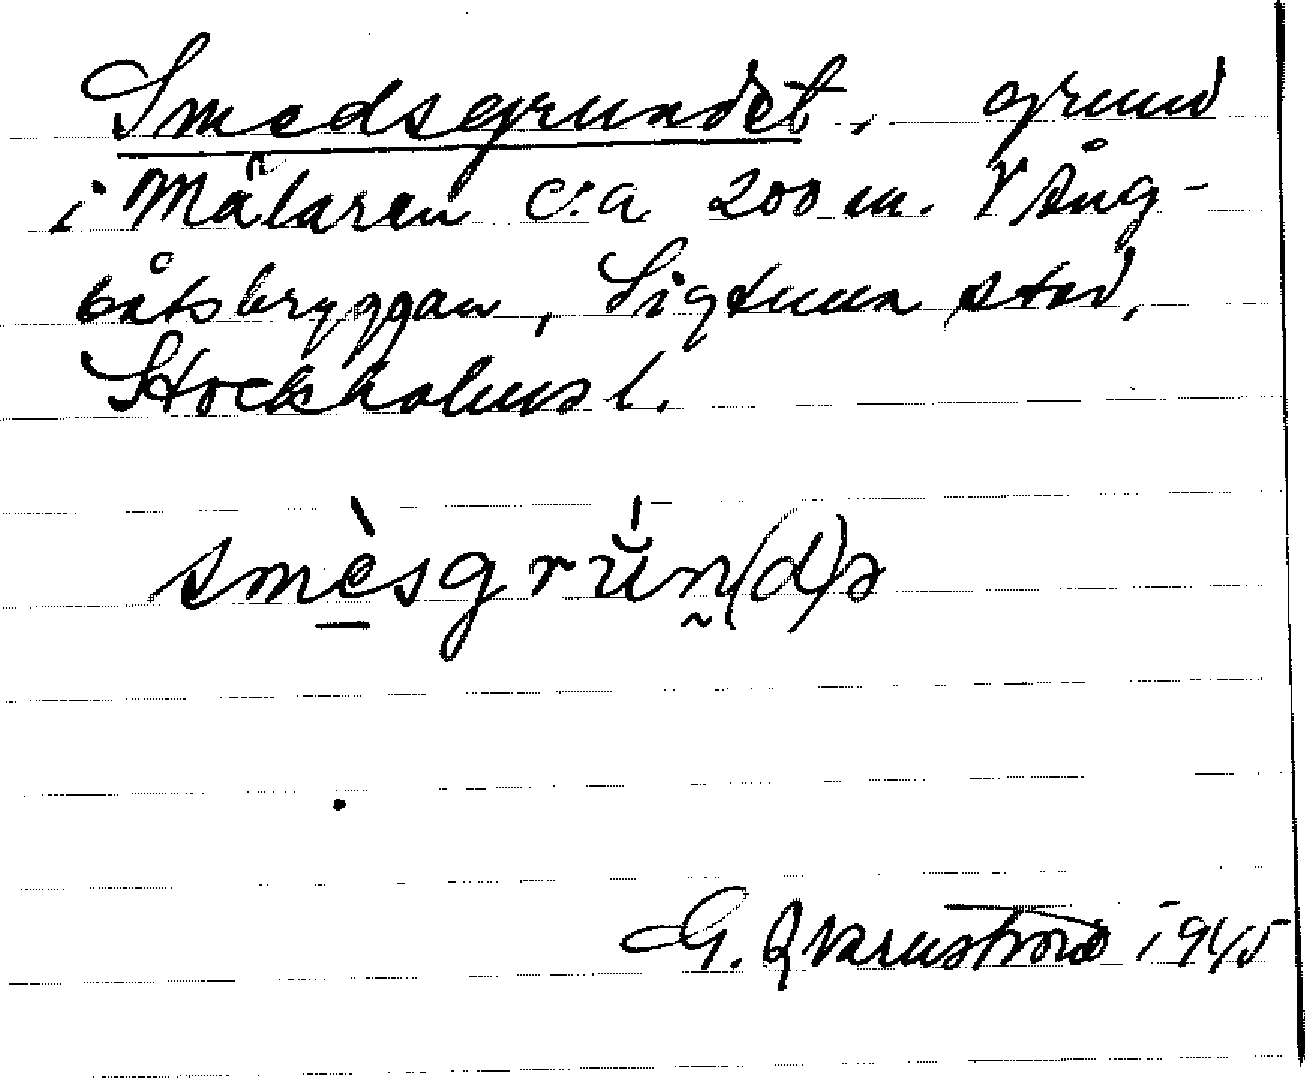 Smedsgrundet, grund
i Mälaren c:a 200 m. V Ång-
båtsbryggan, Sigtuna stad,
Stockholms l.
smèsgrŭ́n̰(d)ə
G. Qvarnström 1945